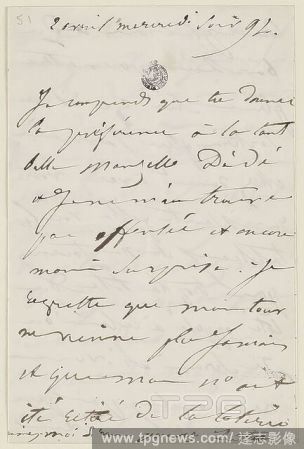 51
2 avril mercredi soir 9h.
Je comprends que tu donnes
la préférence à la tant
belle Mamzelle Dédé
et je ne m'en trouve
pas offensée et encore
moins surprise. Je
regrette que mon tour
ne vienne plus jamais
et que mon nº ait
été retiré de la loterie
TPG
www.tpgnews.com 達志影像